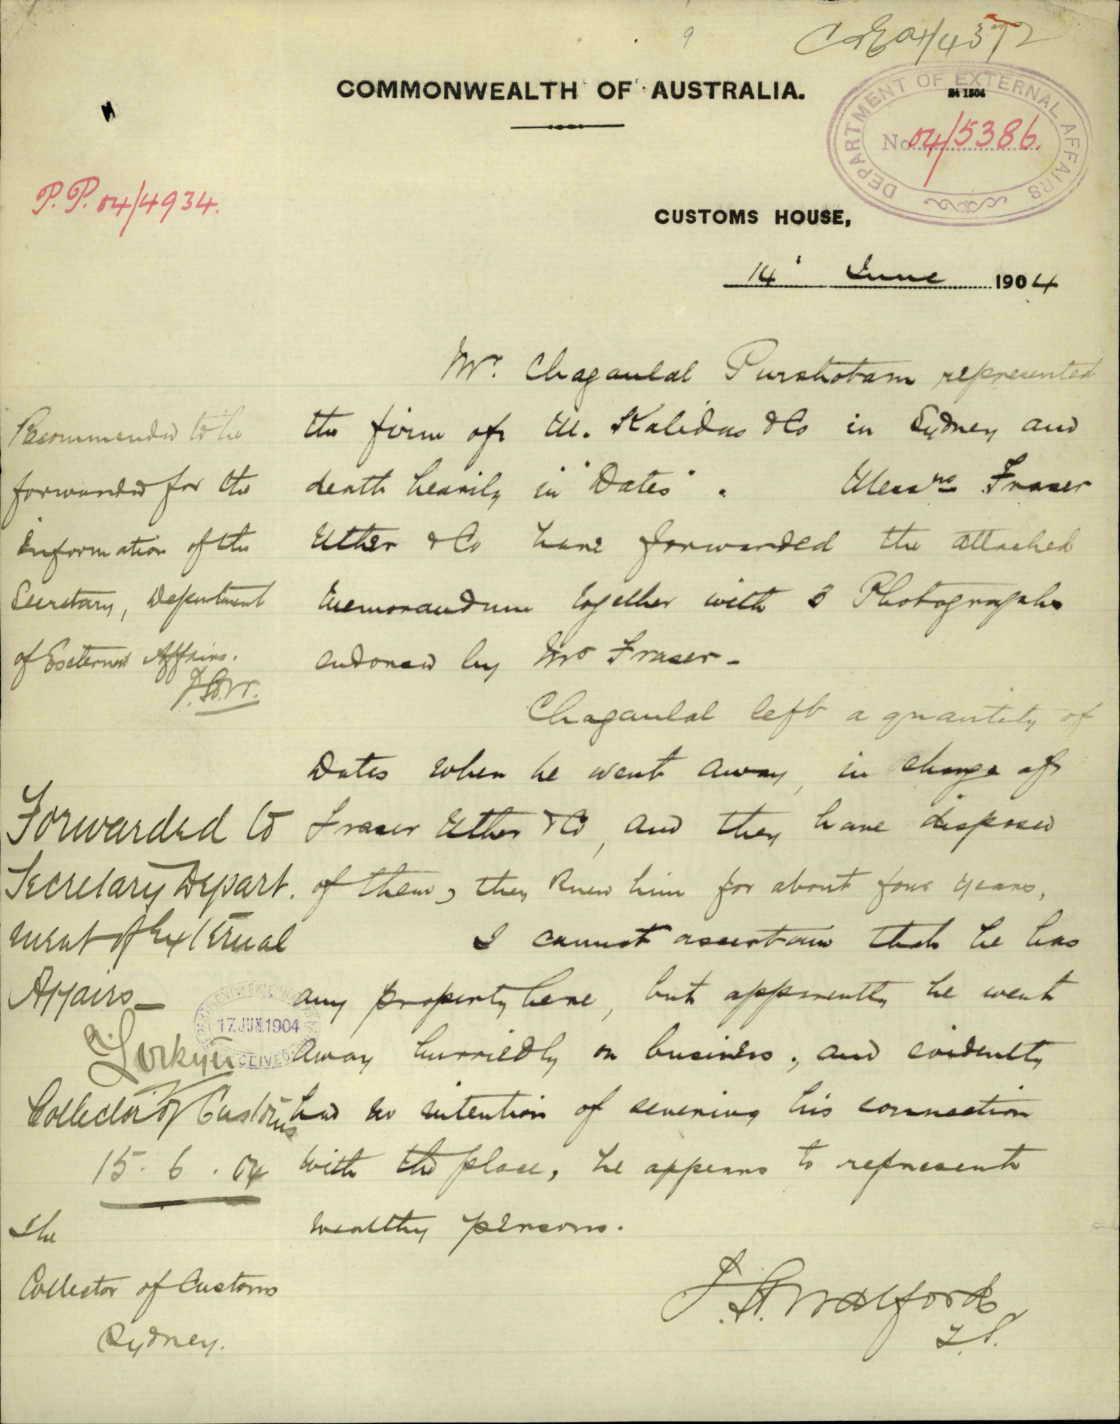 9
C&E 04/4572
COMMONWEALTH OF AUSTRALIA.
DEPARTMENT OF EXTERNAL AFFAIRS
No 04/5386.
P.P. 04/4934.
CUSTOMS HOUSE,
14 June 1904
Mr. Chaganlal Purshotam represented
the firm of M. Kalidas & Co in Sydney and
dealt heavily in "Dates". Messrs Fraser
Uther & Co have forwarded the attached
memorandum together with 3 Photographs
endorsed by Mr Fraser -
Chaganlal left a quantity of
Dates when he went away, in charge of
Fraser Uther & Co, and they have disposed
of them, they knew him for about four years.
I cannot ascertain that he has
any property here, but apparently he went
away hurriedly on business, and evidently
had no intention of severing his connection
with the place, he appears to represent
wealthy persons.
J. H. Walford
Recommended to be
forwarded for the
information of the
Secretary, Department
of External Affairs.
Forwarded to
Secretary Depart.
ment of External
Affairs -
17 JUN 1904
Collector of Customs
15. 6. 04
The
Collector of Customs
Sydney.